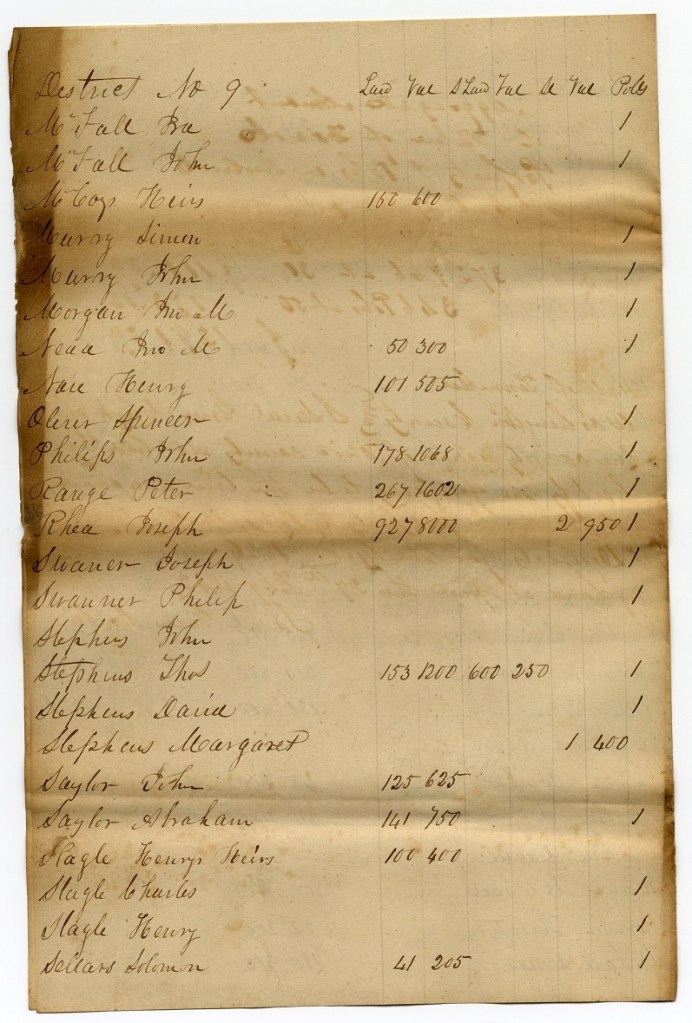 District No 9 Land Val S Land Val Sl Val Polls
McFall Ira 1
McFall John 1
McCoys Heirs 150 600
Murry Simon 1
Murry John 1
Morgan Jno M 1
Jno M 50 300 1
Henry 101 505
Oliver Spencer 1
Philips John 178 1068 1
Range Peter 267 1602 1
Rhea Joseph 927 8000 2 950 1
Swaner Joseph 1
Swanner Philip 1
Stephens John
Stephens Thos 153 1200 600 250 1
Stephens David 1
Stephens Margaret 1 400
Saylor John 125 625
Saylor Abraham 141 750 1
Slagle Henrys Heirs 100 400
Slagle Charles 1
Slagle Henry 1
Sellars Solomon 41 205 1